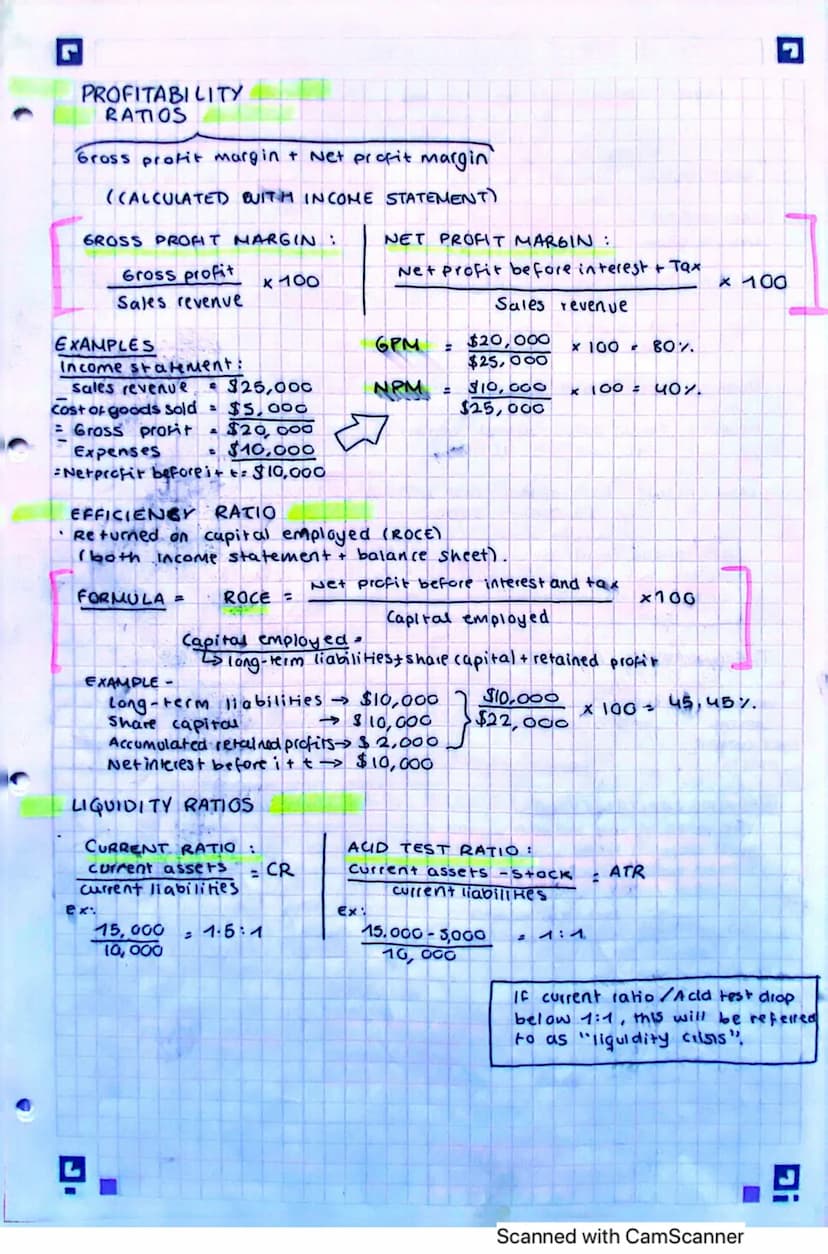 PROFITABILITY
RATIOS
Gross profit margin + Net profit margin
(CALCULATED WITH INCOME STATEMENT)
GROSS PROFIT MARGIN :
Gross profit
Sales revenue
x 100
NET PROFIT MARGIN :
Net profit before interest + Tax
Sales revenue
x 100
EXAMPLES
Income statement:
Sales revenue = $25,000
- Cost of goods sold = $5,000
= Gross profit = $20,000
- Expenses = $10,000
= Net profit before i + t = $10,000
GPM = $20,000
$25,000
x 100 = 80%.
NPM = $10,000
$25,000
x 100 = 40%.
EFFICIENCY RATIO
· Returned on capital employed (ROCE)
(both income statement + balance sheet).
FORMULA = ROCE = Net profit before interest and tax
Capital employed
x100
Capital employed =
↳ long-term liabilities + share capital + retained profit
EXAMPLE -
Long-term liabilities → $10,000
Share capital → $10,000
Accumulated retained profits → $2,000
Net interest before i + t → $10,000
$10,000
$22,000
x 100 = 45,45%.
LIQUIDITY RATIOS
CURRENT RATIO :
current assets
current liabilities
= CR
ex:
15,000
10,000
= 1.5:1
ACID TEST RATIO :
Current assets - Stock
current liabilities
= ATR
Ex:
15.000 - 5,000
10,000
= 1:1
If current ratio/Acid test drop
below 1:1, this will be referred
to as "liquidity crisis".
Scanned with CamScanner